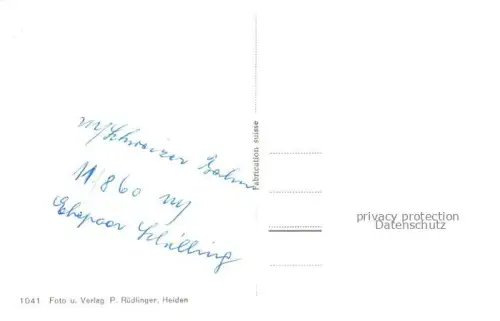 m/Schweizer Bahn
11/860 m/
Ehepaar Schilling
Fabrication suisse
privacy protection
Datenschutz
1041 Foto u. Verlag P. Rüdlinger, Heiden